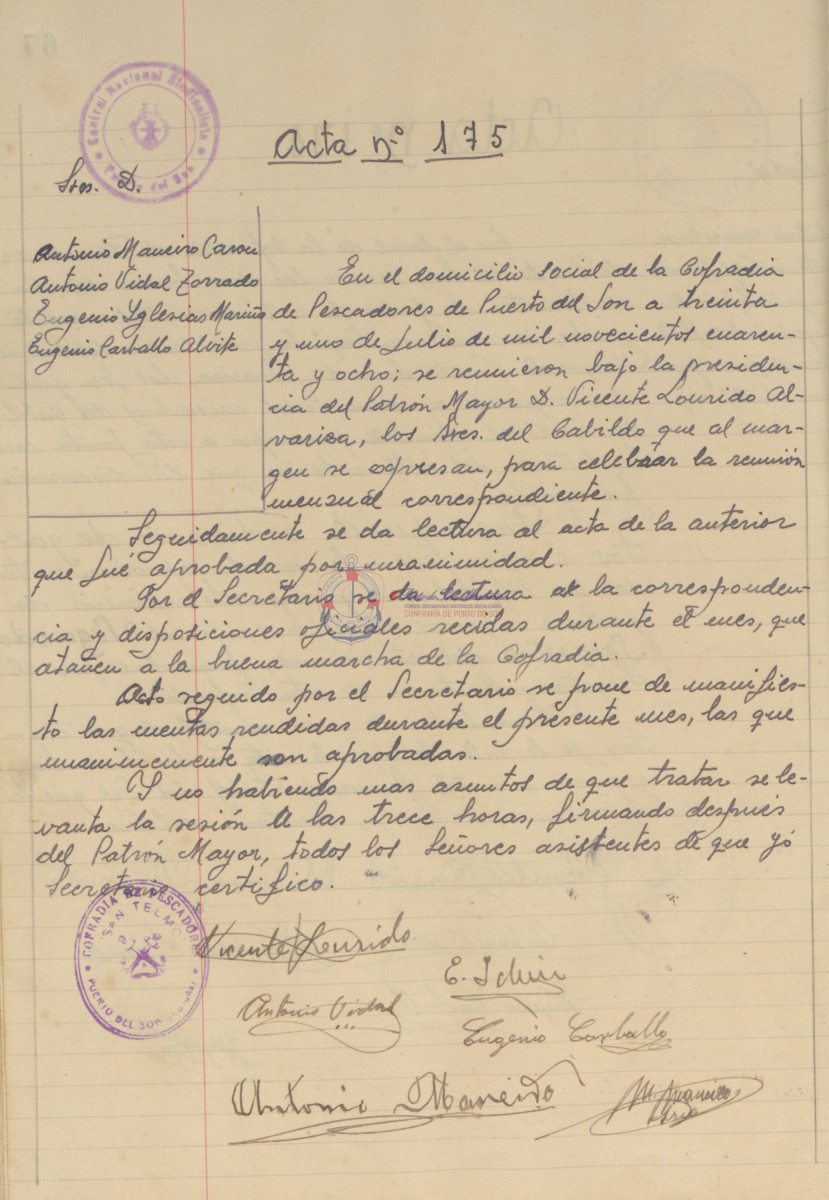 Central Nacional Sindicalista
Puerto del Son
Acta nº 175
Sres. D.
Antonio Maneiro Carou
Antonio Vidal Zorrado
Eugenio Yglesias Mariño
Eugenio Carballo Alvite
En el domicilio social de la Cofradia
de Pescadores de Puerto del Son a treinta
y uno de Julio de mil novecientos cuaren-
ta y ocho; se reunieron bajo la presiden-
cia del Patrón Mayor D. Vicente Lourido Al-
variza, los Sres. del Cabildo que al mar-
gen se expresan, para celebrar la reunión
mensual correspondiente.
Seguidamente se da lectura al acta de la anterior
que fué aprobada por unanimidad.
Por el Secretario se da lectura a la corresponden-
cia y disposiciones oficiales recidas durante el mes, que
atañen a la buena marcha de la Cofradia.
Acto seguido por el Secretario se pone de manifies-
to las cuentas rendidas durante el presente mes, las que
unanimemente son aprobadas.
Y no habiendo mas asuntos de que tratar se le-
vanta la sesión a las trece horas, firmando después
del Patrón Mayor, todos los Señores asistentes de que yó
Secretario certifico.
COFRADIA DE PESCADORES
"SAN TELMO"
PUERTO DEL SON
Vicente Lourido
Antonio Vidal
Eugenio Carballo
Antonio Maneiro
CONFRARÍA DE PORTO DO SON